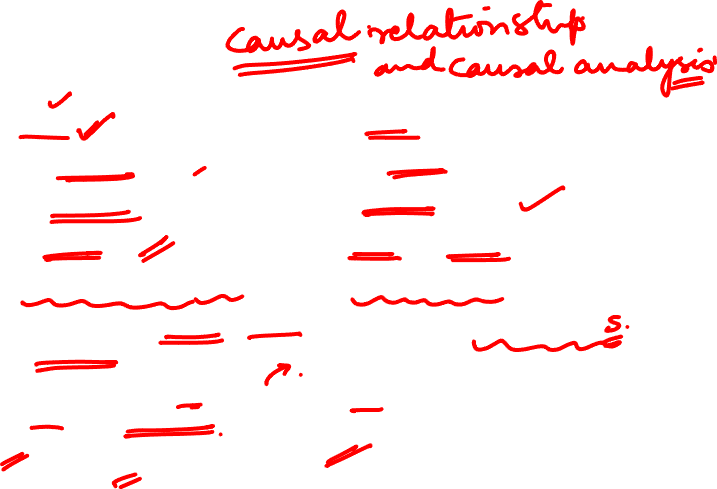 causal relationship
and causal analysis
s.